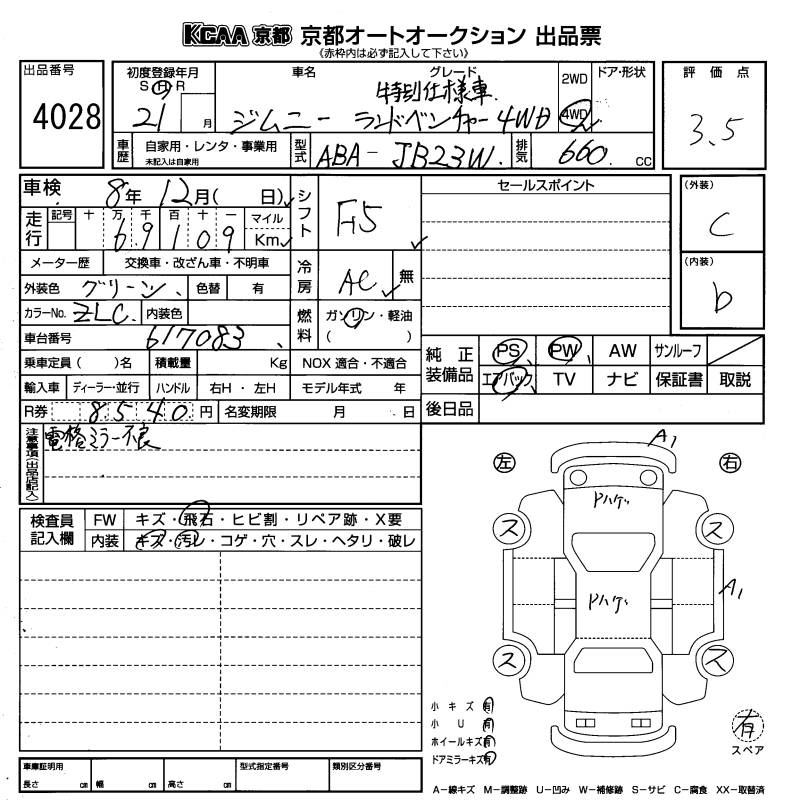 KCAA 京都 京都オートオークション 出品票
《赤枠内は必ず記入して下さい》
出品番号
4028
初度登録年月
S H R
21 月
車名 グレード
特別仕様車
ジムニー ランドベンチャー 4WD
2WD
4WD
ドア・形状
評価点
3.5
車歴
自家用・レンタ・事業用
未記入は自家用
型式
ABA-JB23W
排気
660 cc
車検 8年 12月( 日)
走行
記号 十 万 千 百 十 一
6 9 1 0 9
マイル
Km
シフト
F5
メーター歴 交換車・改ざん車・不明車
外装色 グリーン 色替 有
冷房
AC 無
カラーNo. ZLC 内装色
燃料
ガソリン・軽油
( )
車台番号 617083
乗車定員( )名 積載量 Kg NOX 適合・不適合
輸入車 ディーラー・並行 ハンドル 右H・左H モデル年式 年
R券 8540 円 名変期限 月 日
注意事項(出品店記入)
電格ミラー不良
セールスポイント
(外装)
C
(内装)
b
純正装備品
PS PW AW サンルーフ
エアバック TV ナビ 保証書 取説
後日品
検査員記入欄
FW キズ・飛石・ヒビ割・リペア跡・X要
内装 キズ・汚レ・コゲ・穴・スレ・ヘタリ・破レ
左 A1 右
Pハゲ
ス ス
Pハゲ
A1
ス ス
小キズ 有
小U 有
ホイールキズ 有
ドアミラーキズ 有
有
スペア
車庫証明用
長さ cm 幅 cm 高さ cm
型式指定番号
類別区分番号
A−線キズ M−調整跡 U−凹み W−補修跡 S−サビ C−腐食 XX−取替済